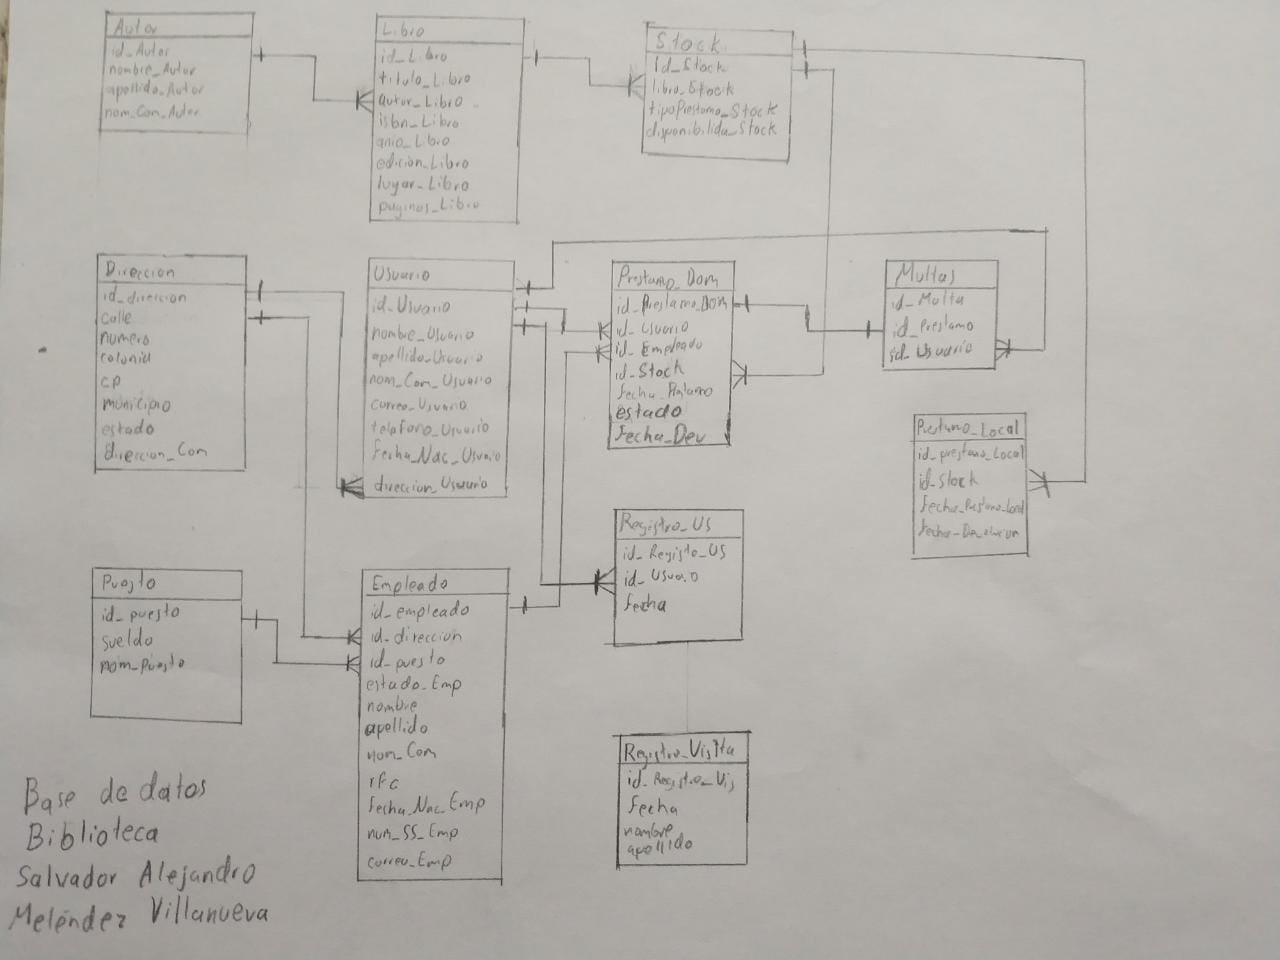 Autor
id_Autor
nombre_Autor
apellido_Autor
nom_Com_Autor
Libro
id_Libro
titulo_Libro
autor_Libro
isbn_Libro
anio_Libro
edicion_Libro
lugar_Libro
paginas_Libro
Stock
id_Stock
libro_Stock
tipoPrestamo_Stock
disponibilida_Stock
Direccion
id_direccion
calle
numero
colonia
CP
municipio
estado
direccion_Com
Usuario
id_Usuario
nombre_Usuario
apellido_Usuario
nom_Com_Usuario
correo_Usuario
telefono_Usuario
fecha_Nac_Usuario
direccion_Usuario
Prestamo_Dom
id_Prestamo_Dom
id_Usuario
id_Empleado
id_Stock
fecha_Prestamo
estado
Fecha_Dev
Multas
id_Multa
id_Prestamo
id_Usuario
Prestamo_Local
id_prestamo_Local
id_Stock
fecha_Prestamo_Local
fecha_Devolucion
Puesto
id_puesto
sueldo
nom_Puesto
Empleado
id_empleado
id_direccion
id_puesto
estado_Emp
nombre
apellido
nom_Com
rfc
fecha_Nac_Emp
num_SS_Emp
correo_Emp
Registro_US
id_Registo_US
id_Usuario
fecha
Registro_Visita
id_Registro_Vis
Fecha
nombre
apellido
Base de datos
Biblioteca
Salvador Alejandro
Meléndez Villanueva